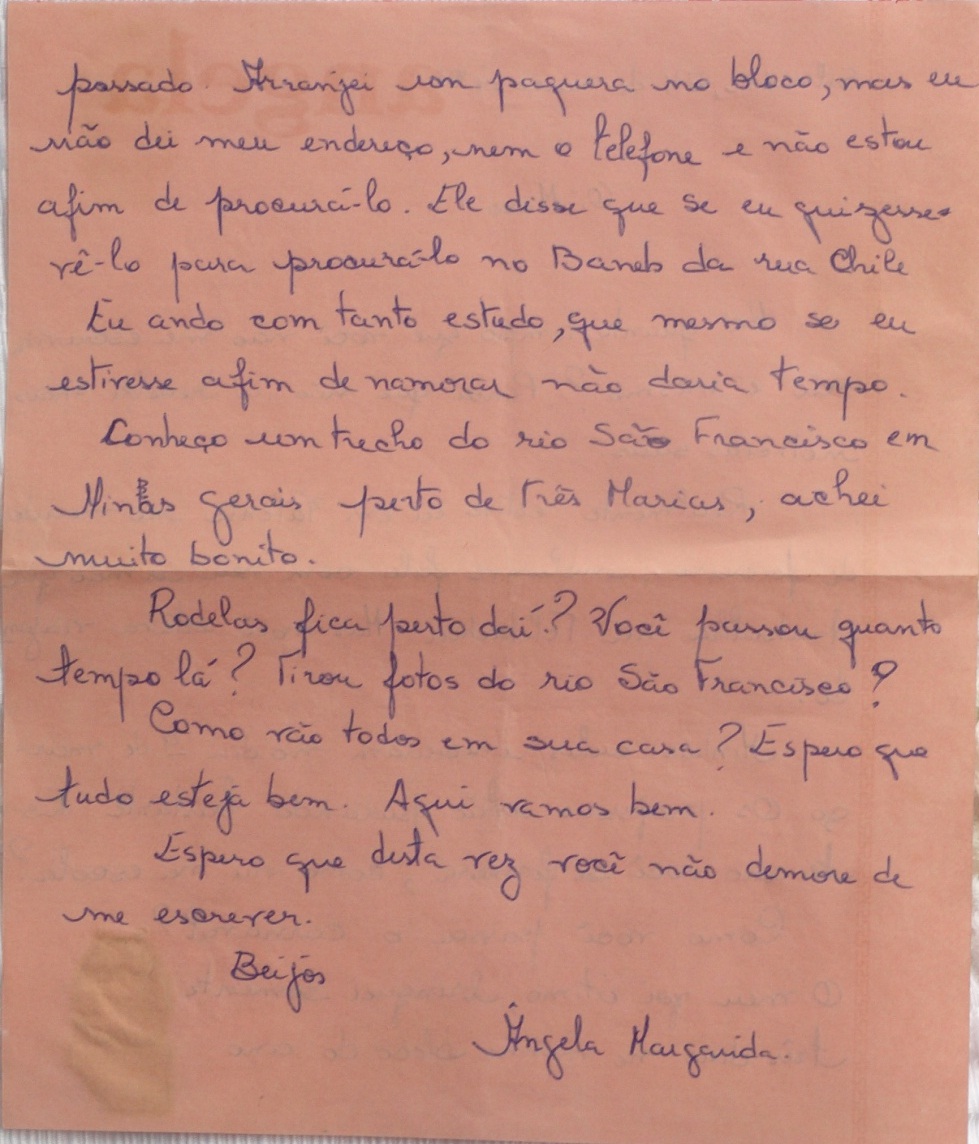 passado. Arranjei um paquera no bloco, mas eu
não dei meu endereço, nem o telefone e não estou
afim de procurá-lo. Ele disse que se eu quizesse
vê-lo para procurá-lo no Baneb da rua Chile
Eu ando com tanto estudo, que mesmo se eu
estivesse afim de namorar não daria tempo.
Conheço um trecho do rio São Francisco em
Minas gerais perto de três Marias, achei
muito bonito.
Rodelas fica perto daí? Você passou quanto
tempo lá? Tirou fotos do rio São Francisco?
Como vão todos em sua casa? Espero que
tudo esteja bem. Aqui vamos bem.
Espero que desta vez você não demore de
me escrever.
Beijos
Ângela Margarida.